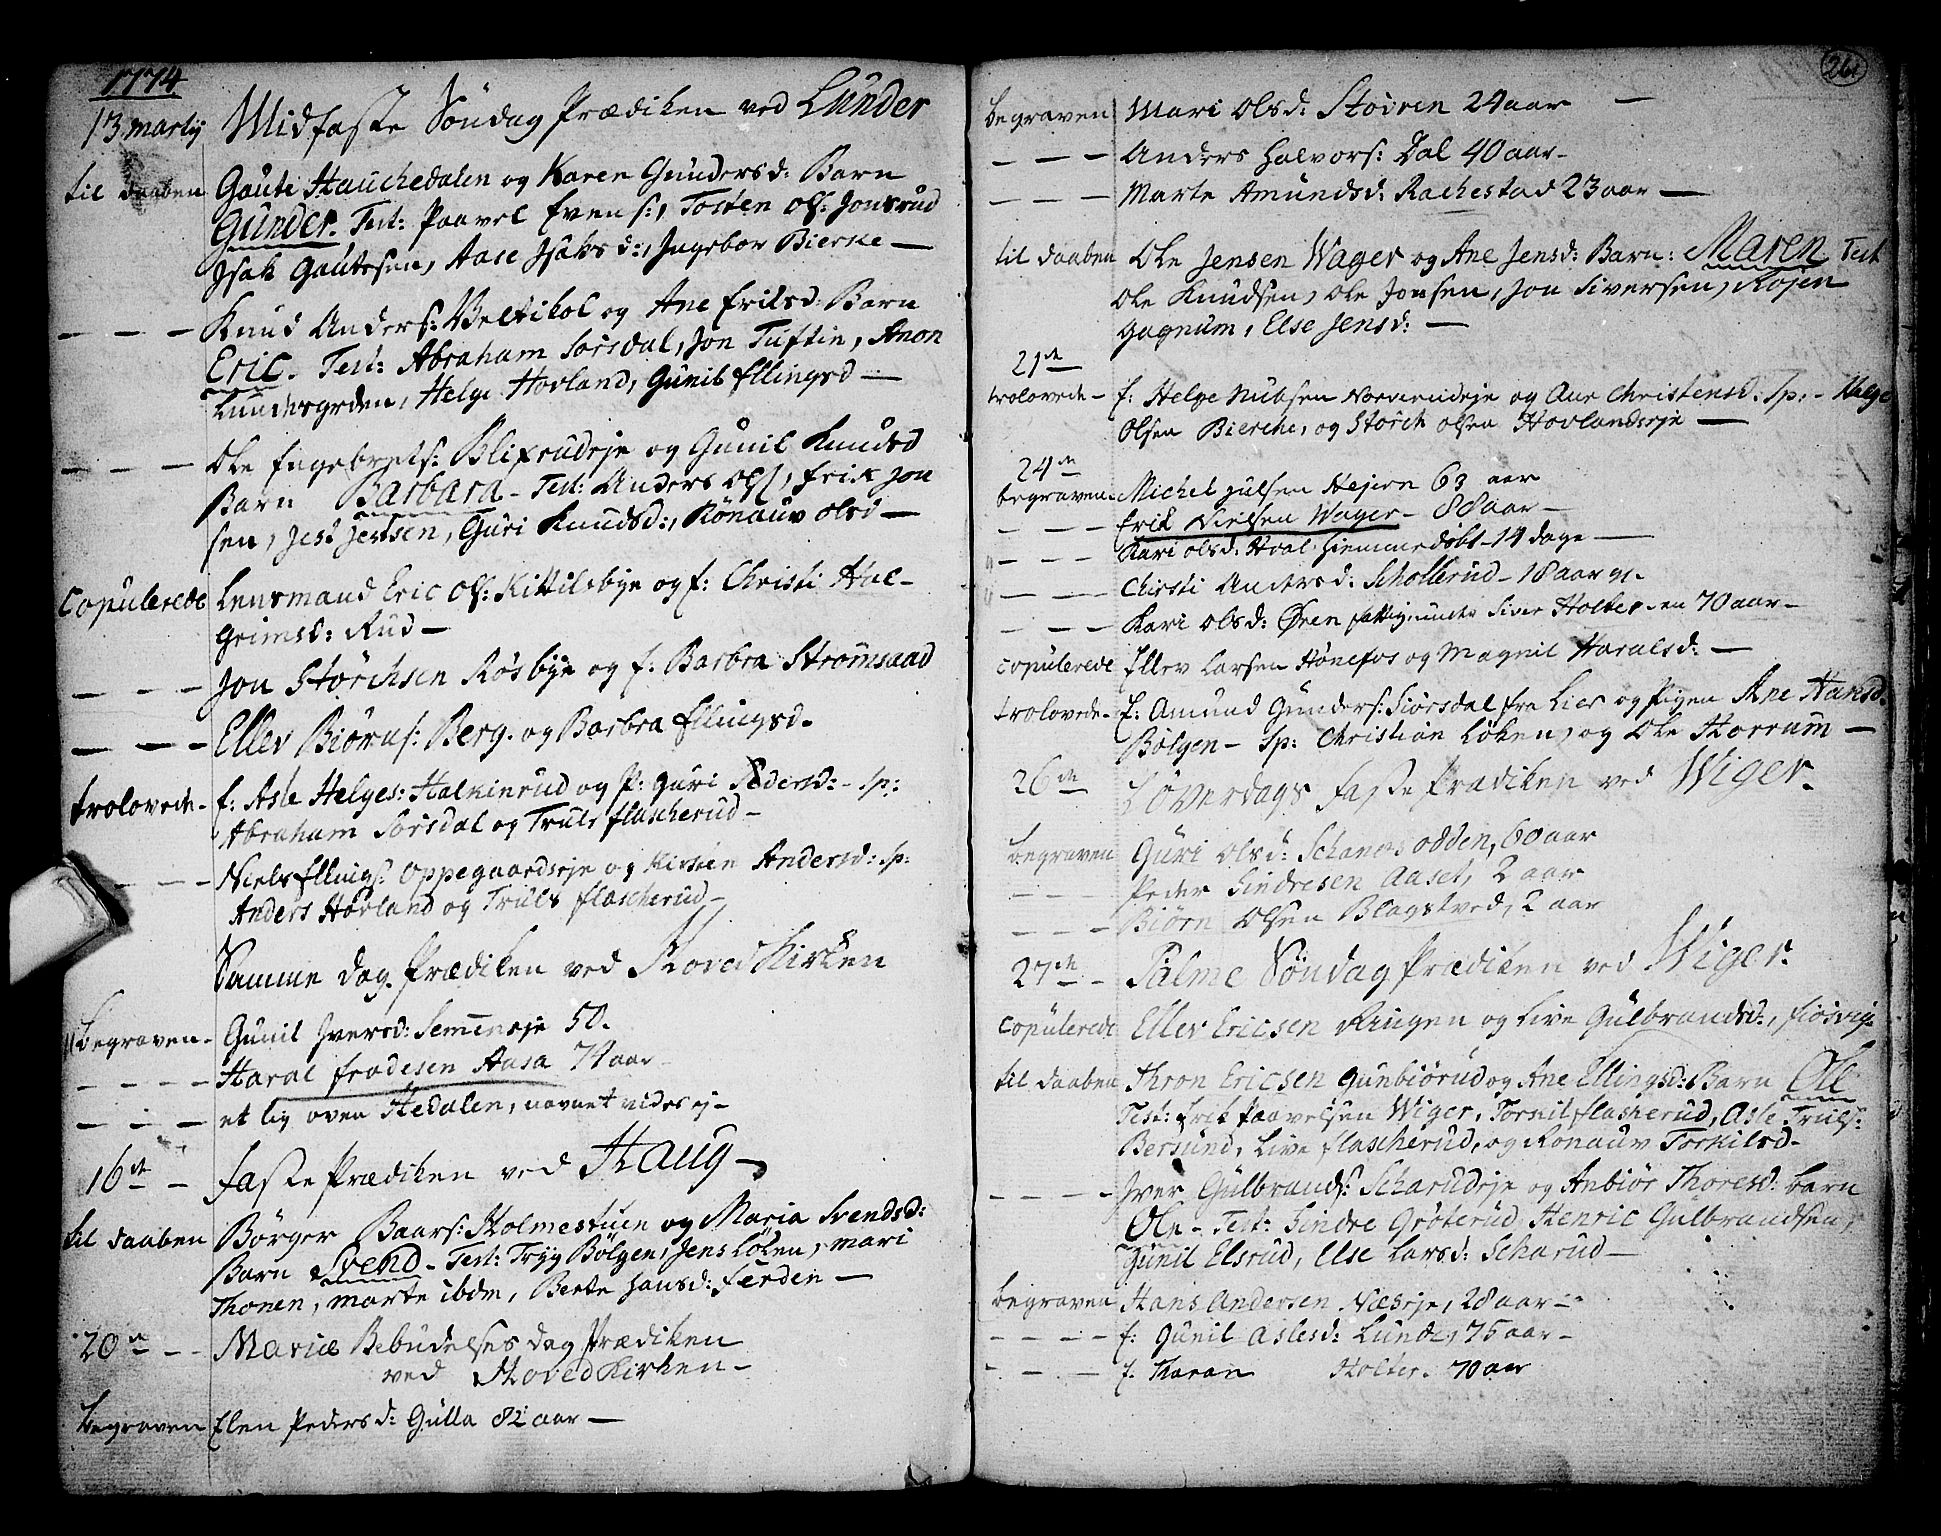 1774
13 martij Midfaste Söndag Prædiken ved Lunder
til daaben Gaute Hauchedalen og Karen Gundersd: Barn
Gunder. Test: Paavel Evens:, Tosten Ols: Jonsrud
Isak Gautesen, Aase Isaksd:, Ingebor Bierke —
— — — Knud Anders: Veltikol og Ane Eriksd: Barn
Eric. Test: Abraham Sørsdal, Jon Tuftin, Anon
Lundesgrden, Helge Hovland, Gunil Ellingsd —
— — — Ole Engebrets: Blixrudeje og Gunil Knudsd
Barn Barbara - Test: Anders Ols, Erik Jon
sen, Jest Jestsen, Guri Knudsd:, Rönauv Olsd —
Copulerede Lensmand Eric Ols: Kittilsbye og f: Christi Hal-
Grimsd: Rud —
— — — Jon Störchsen Rösbye og f: Barbra Strømsaad
— — — Ellev Biörns: Berg. og Barbra Ellingsd.
trolovede - f: Asle Helges: Halkinrud og P: Guri Pedersd: - Sp:
Abraham Sorsdal og Truls Flascherud —
— — Niels Ellings: Oppegaardseje og Kirsten Andersd: Sp:
Anders Hovland og Truls Flascherud -
Samme Dag. Prædiken ved Hoved Kirken
Begraven - Gunil Iversd: Semenseje 50.
— — — Haral Frodesen Aasa 74 aar
— — — et lig oven Hedalen, navnet vides ej -
16de - Faste Prædiken ved Haug —
til daaben Börger Baars: Holmestuen og Maria Svendsd:
Barn Svend - Test: Tryg Bölgen, Jens Löken, Mari
Thonen, Marte ibdm, Berte Hansd: Ferden —
20de - - Mariæ Bebudelses dag Prædiken
ved Hoved Kirken -
Begraven Elen Pedersd: Gulla 82 aar —
261
Begraven Mari Olsd: Stövren 24 aar —
— — — Anders Halvors: Dal 40 aar -
— — — Marte Amundsd: Rachestad 23 aar —
til daaben Ole Jensen Wager og Ane Jensd: Barn: Maren Test
Ole Knudsen, Ole Jonsen, Jon Siversen, Kojen
Gagnum, Else Jensd: —
21de
trolovede - f: Helge Nubsen Norderudeje og Ane Christensd: Sp: - Helge
Olsen Bierche, og Störch Olsen Hovlandseje —
24de
Begraven - Michel Julsen Hejern 63 aar
— — — Erik Nielsen Wager - 88 aar -
— — — Kari Olsd: Hval Hiemmedöbt - 14 dage —
— — — Chirsti Andersd: Schollerud - 18 aar gl.
— — — Kari Olsd: Ören fattig, under Siver Holter - en 70 aar -
copulerede Ellev Larsen Hönefos og Magnil Haralsd: —
trolovede - f: Amund Gunders: Siörsdal fra Lier og Pigen Ane Hansd.
Bölgen - Sp: Christian Löken, og Ole Horrum —
26de Löverdags Faste Prædiken ved Wiger.
Begraven Guri Olsd: Schanesodden, 60 aar
— — — Peder Sindresen Aaset, 2 aar
— — — Biörn Olsen Blagstved, 2 aar
27de - Palme Söndag Prædiken ved Wiger.
copulerede Ellev Ericsen Ringen og Live Gulbrandsd:, Fiösvig.
til daaben Thron Ericsen Gunbiörud og Ane Ellingsd: Barn Ole
Test: Erik Paavelsen Wiger, Torkil Flasherud, Asle Truls:
Bersund, Live Flascherud, og Ronauv Torkilsd -
— — — — Iver Gulbrands: Scharudeje og Anbiör Thoresd: Barn
Ole - Test: Sindre Gröterud, Henric Gulbrandsen,
Gunil Elsrud, Else Larsd: Scharud —
Begraven Hans Andersen Næseje, 28 aar -
— — — — f: Gunil Aslesd: Lunde, 75 aar -
— — — f. Thoran Holter. 70 aar